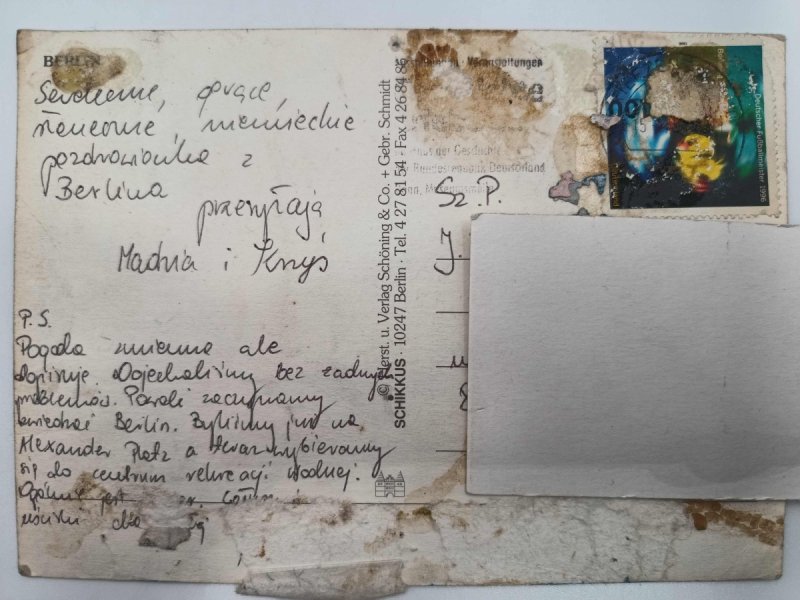 BERLIN
Serdeczne, gorące,
słoneczne, niemieckie
pozdrowionka z
Berlina
przesyłają
Madzia i Krzyś
P.S.
Pogoda zmienna ale
dopisuje. Dojechaliśmy bez żadnych
problemów. Powoli zaczynamy
zwiedzać Berlin. Byliśmy już na
Alexander Platz a teraz wybieramy
się do centrum rekreacji wodnej.
Ogólnie jest
uściski dla
© Herst. u. Verlag Schöning & Co. + Gebr. Schmidt
SCHIKKUS · 10247 Berlin · Tel. 4 27 81 54 · Fax 4 26 84 8
Veranstaltungen
Haus der Geschichte
Bundesrepublik Deutschland
Sz. P.
J.
Deutscher Fußballmeister 1996